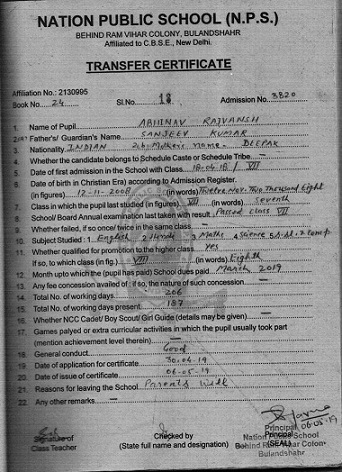 NATION PUBLIC SCHOOL (N.P.S.)
BEHIND RAM VIHAR COLONY, BULANDSHAHR
Affiliated to C.B.S.E., New Delhi.
TRANSFER CERTIFICATE
Affiliation No.: 2130995
Book No.... 24 Sl.No. 18 Admission No... 3820
1. Name of Pupil ABHINAV RAJVANSH
2. Father's/ Guardian's Name SANJEEV KUMAR
3. Nationality INDIAN Mother's name - DEEPAK
4. Whether the candidate belongs to Schedule Caste or Schedule Tribe. —
5. Date of first admission in the School with Class. 18-04-18 / VII
6. Date of birth in Christian Era) according to Admission Register.
(in figures) 12-11-2008 (in words) Twelve Nov. Two Thousand Eight
7. Class in which the pupil last studied (in figures) VII (in words) Seventh
8. School/ Board Annual examination last taken with result. Passed class VII
9. Whether failed, if so once/ twice in the same class —
10. Subject Studied : 1. English 2. Hindi 3. Maths 4. Science 5.
11. Whether qualified for promotion to the higher class. Yes
if so, to which class (in fig.) VIII (in words) Eighth
12. Month upto which the (pupil has paid) School dues paid March 2019
13. Any fee concession availed of : if so, the nature of such concession —
14. Total No. of working days 206
15. Total No. of working days present 187
16. Whether NCC Cadet/ Boy Scout/ Girl Guide (details may be given) —
17. Games palyed or extra curricular activities in which the pupil usually took part
(mention achievement level therein) —
18. General conduct Good
19. Date of application for certificate 30-04-19
20. Date of issue of certificate 06-05-19
21. Reasons for leaving the School Parents Will
22. Any other remarks —
Signature of
Class Teacher
Checked by
(State full name and designation)
06-05-19
Principal
(SEAL)
Nation Public School
Behind Ram Vihar Colony
Bulandshahr